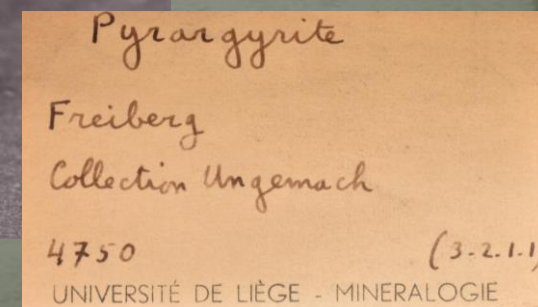 Pyrargyrite
Freiberg
Collection Ungemach
4750 (3.2.1.1)
UNIVERSITÉ DE LIÈGE - MINERALOGIE